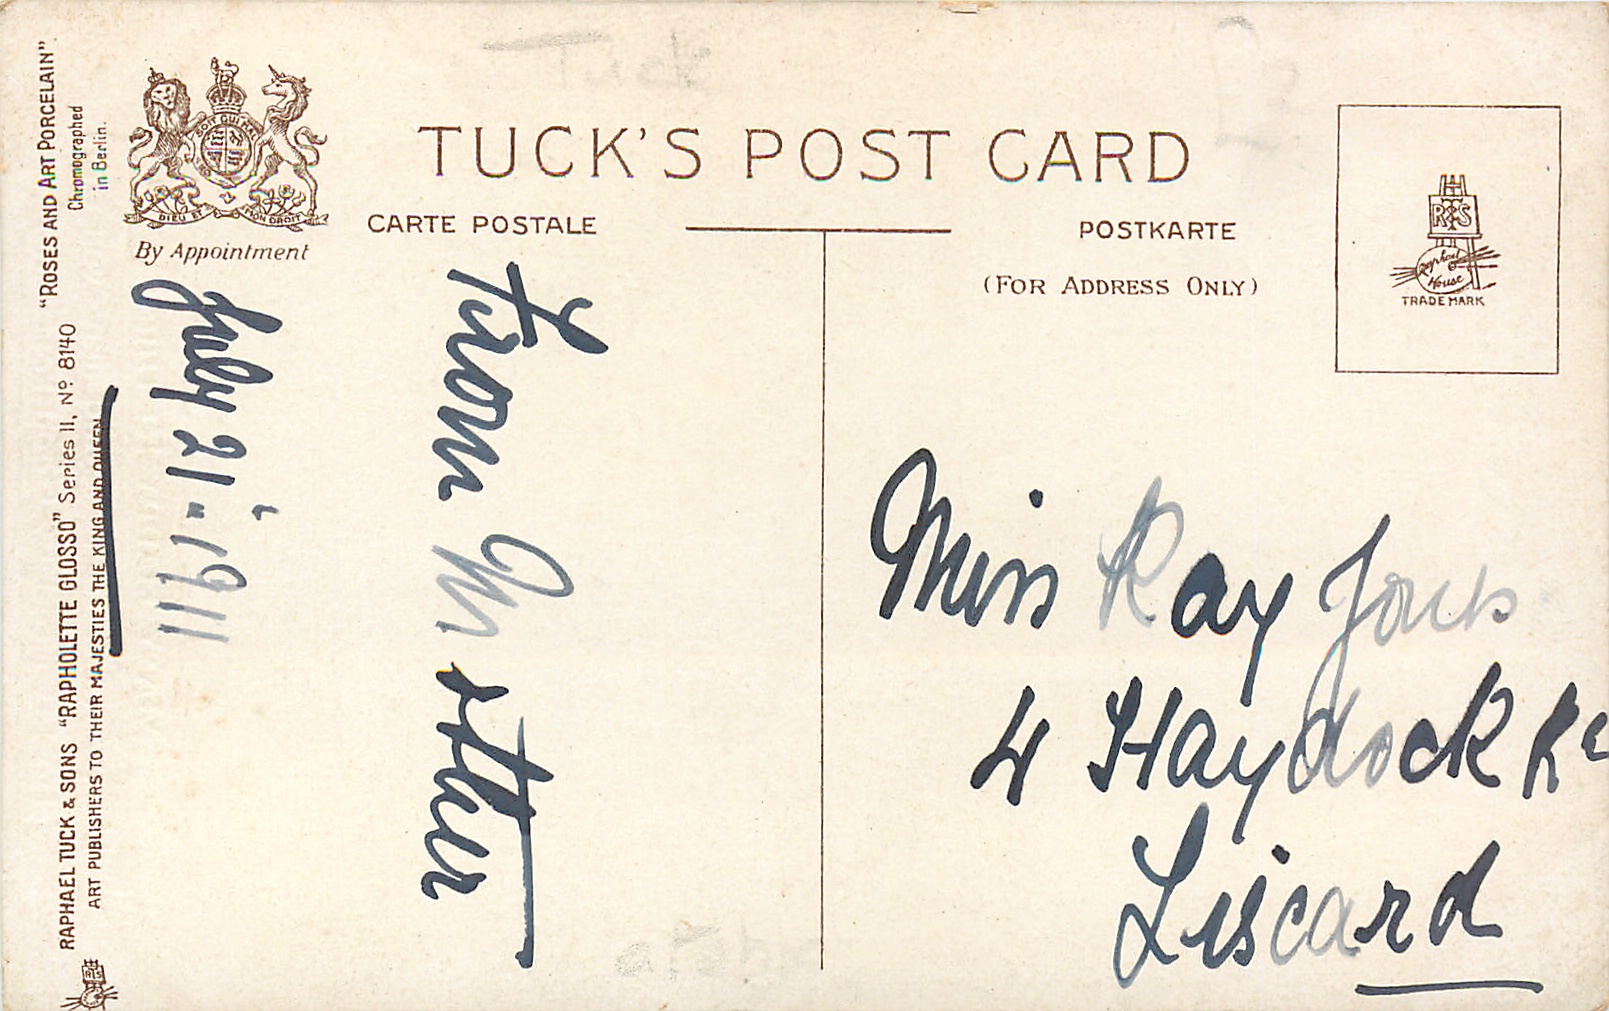 "ROSES AND ART PORCELAIN"
Chromographed
in Berlin.
RAPHAEL TUCK & SONS "RAPHOLETTE GLOSSO" Series II, Nº 8140
ART PUBLISHERS TO THEIR MAJESTIES THE KING AND QUEEN
DIEU ET MON DROIT
By Appointment
TUCK'S POST CARD
CARTE POSTALE
POSTKARTE
(FOR ADDRESS ONLY)
R & S
Raphael
House
TRADE MARK
July 21 - 1911
From M
Miss Ray Jones
4 Haydock Rd
Liscard